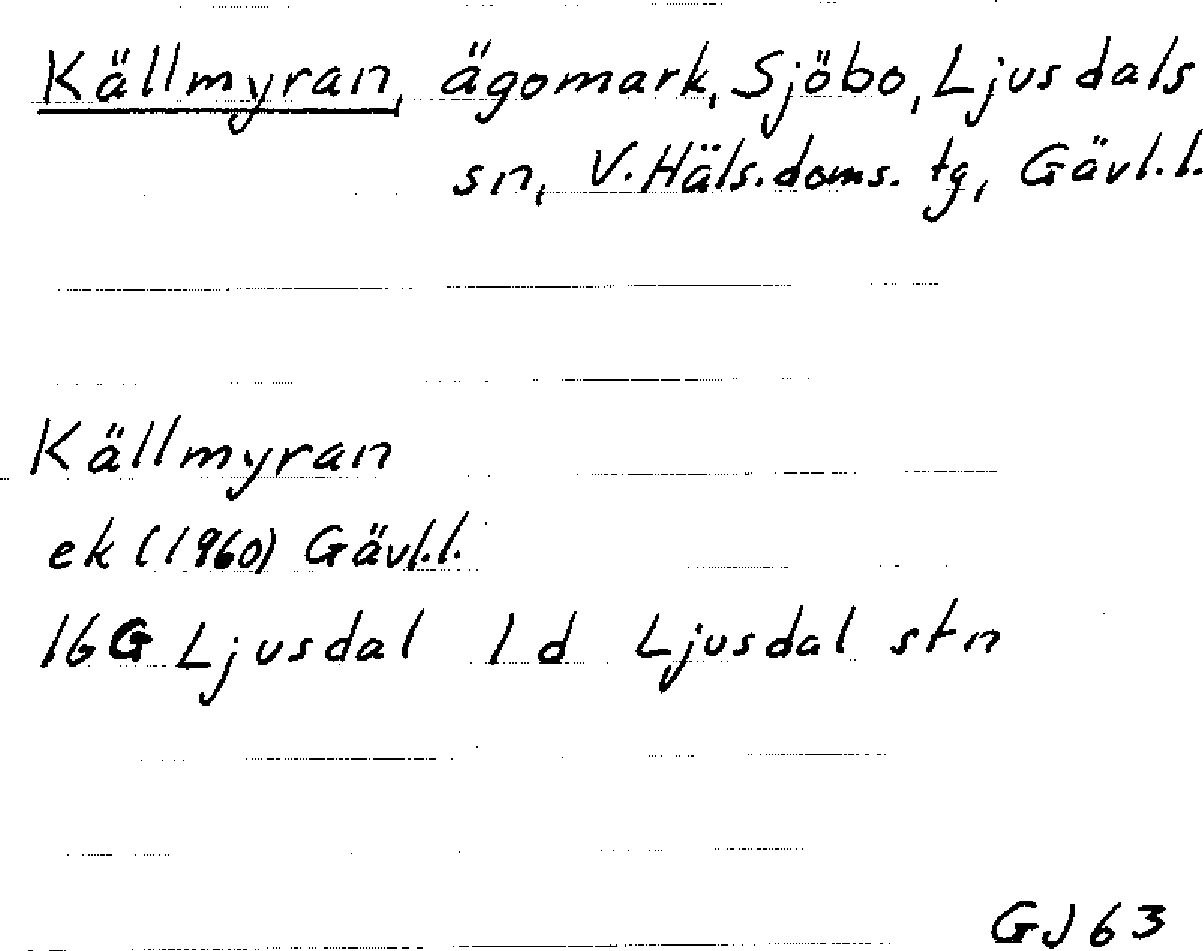 Källmyran, ägomark, Sjöbo, Ljusdals
sn, V. Häls. doms. tg, Gävl. l.
Källmyran
ek (1960) Gävl. l.
16G Ljusdal 1 d Ljusdal stn
GJ 63